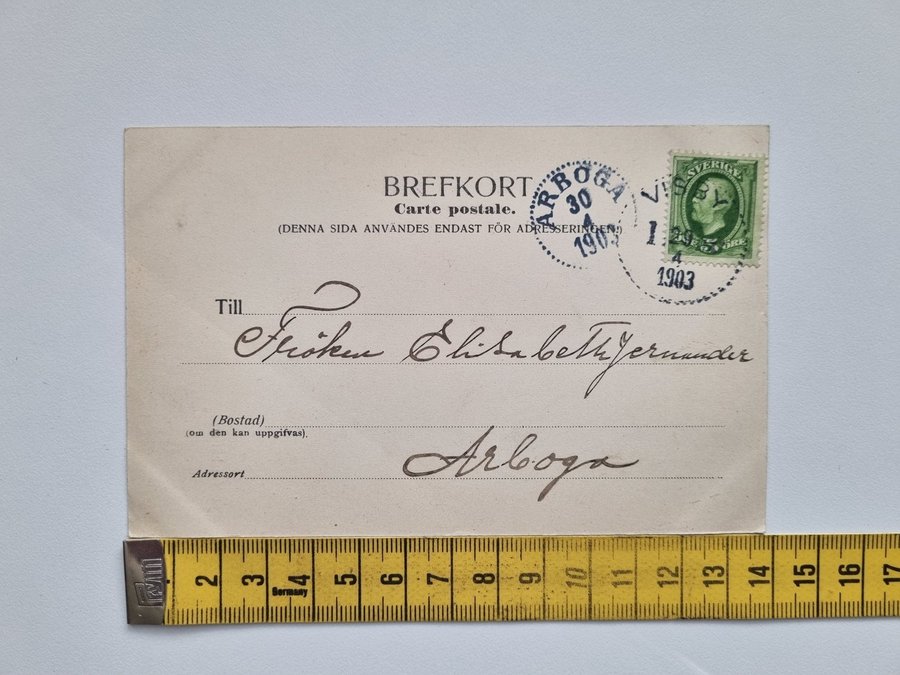 BREFKORT
Carte postale.
(DENNA SIDA ANVÄNDES ENDAST FÖR ADRESSERINGEN.)
ARBOGA
30
4
1903
SVERIGE
5
ÖRE
VISBY
1
29
4
1903
Till
Fröken Elisabeth Jernander
(Bostad)
(om den kan uppgifvas).
Adressort
Arboga
2 3 4 5 6 7 8 9 10 11 12 13 14 15 16 17
Germany